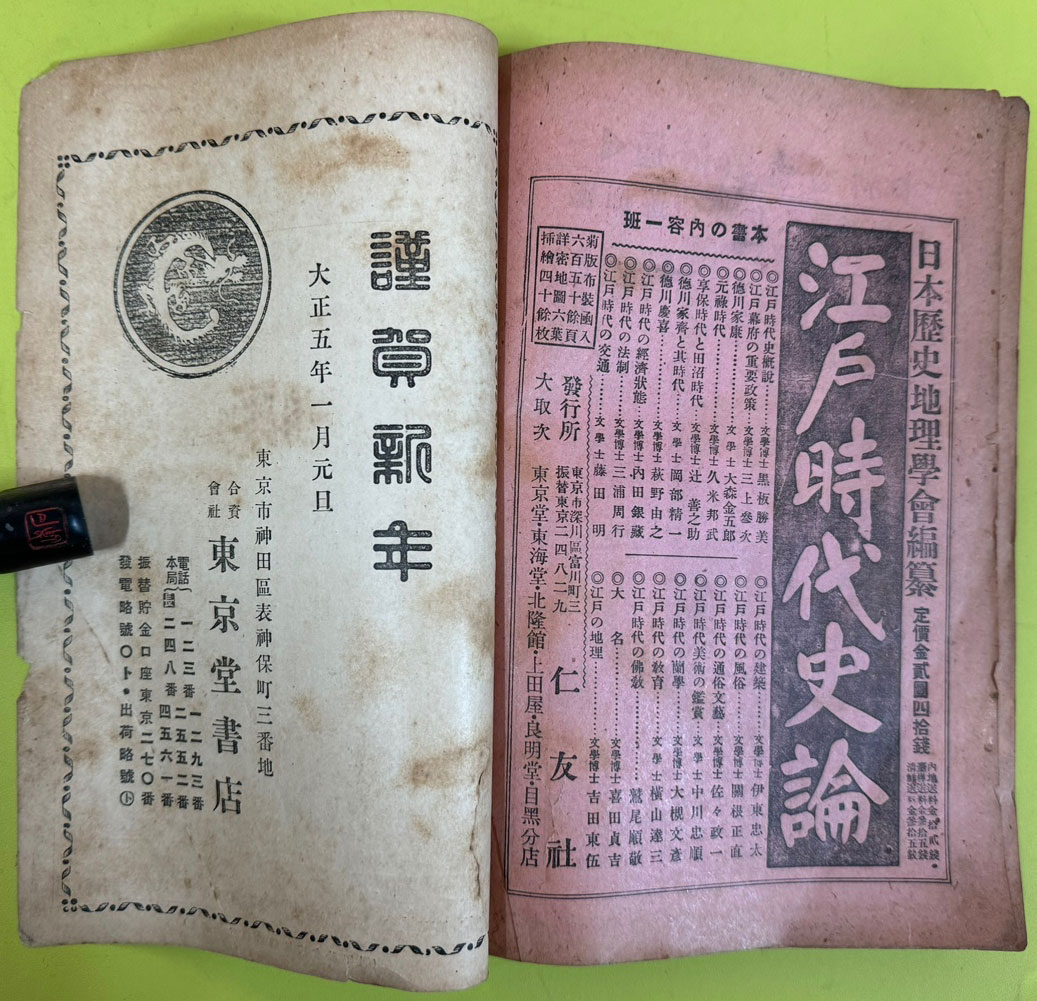 日本歷史地理學會編纂
定價金貳圓四拾錢
內地送料金拾貳錢・
江戸時代史論
本書の內容一班
◎江戸時代史槪說………文學博士 黑板勝美
◎江戸幕府の重要政策…文學博士 三上參次
◎德川家康………………文學士 大森金五郎
◎元祿時代………………文學博士 久米邦武
◎享保時代と田沼時代…文學博士 辻善之助
◎德川家齊と其時代……文學士 岡部精一
◎德川慶喜………………文學博士 萩野由之
◎江戸時代の經濟狀態…文學博士 內田銀藏
◎江戸時代の法制………文學博士 三浦周行
◎江戸時代の交通………文學士 藤田明
◎江戸時代の建築………文學博士 伊東忠太
◎江戸時代の風俗………文學博士 關根正直
◎江戸時代の通俗文藝…文學博士 佐々政一
◎江戸時代美術の鑑賞…文學士 中川忠順
◎江戸時代の蘭學………文學博士 大槻文彥
◎江戸時代の敎育………文學士 橫山達三
◎江戸時代の佛敎………鷲尾順敬
◎大名……………………文學博士 喜田貞吉
◎江戸の地理……………文學博士 吉田東伍
菊版布裝函入
六百五十餘頁
詳密地圖六葉
挿繪四十餘枚
發行所
東京市深川區富川町三
振替東京二四八二九
仁友社
大取次
東京堂・東海堂・北隆館・上田屋・良明堂・目黑分店
謹賀新年
大正五年一月元旦
東京市神田區表神保町三番地
合資會社 東京堂書店
電話本局
一二三番 一二九三番
二五五二番
二四八番 四五六一番
振替貯金口座東京二七〇番
發電略號〇ト・出荷略號ト